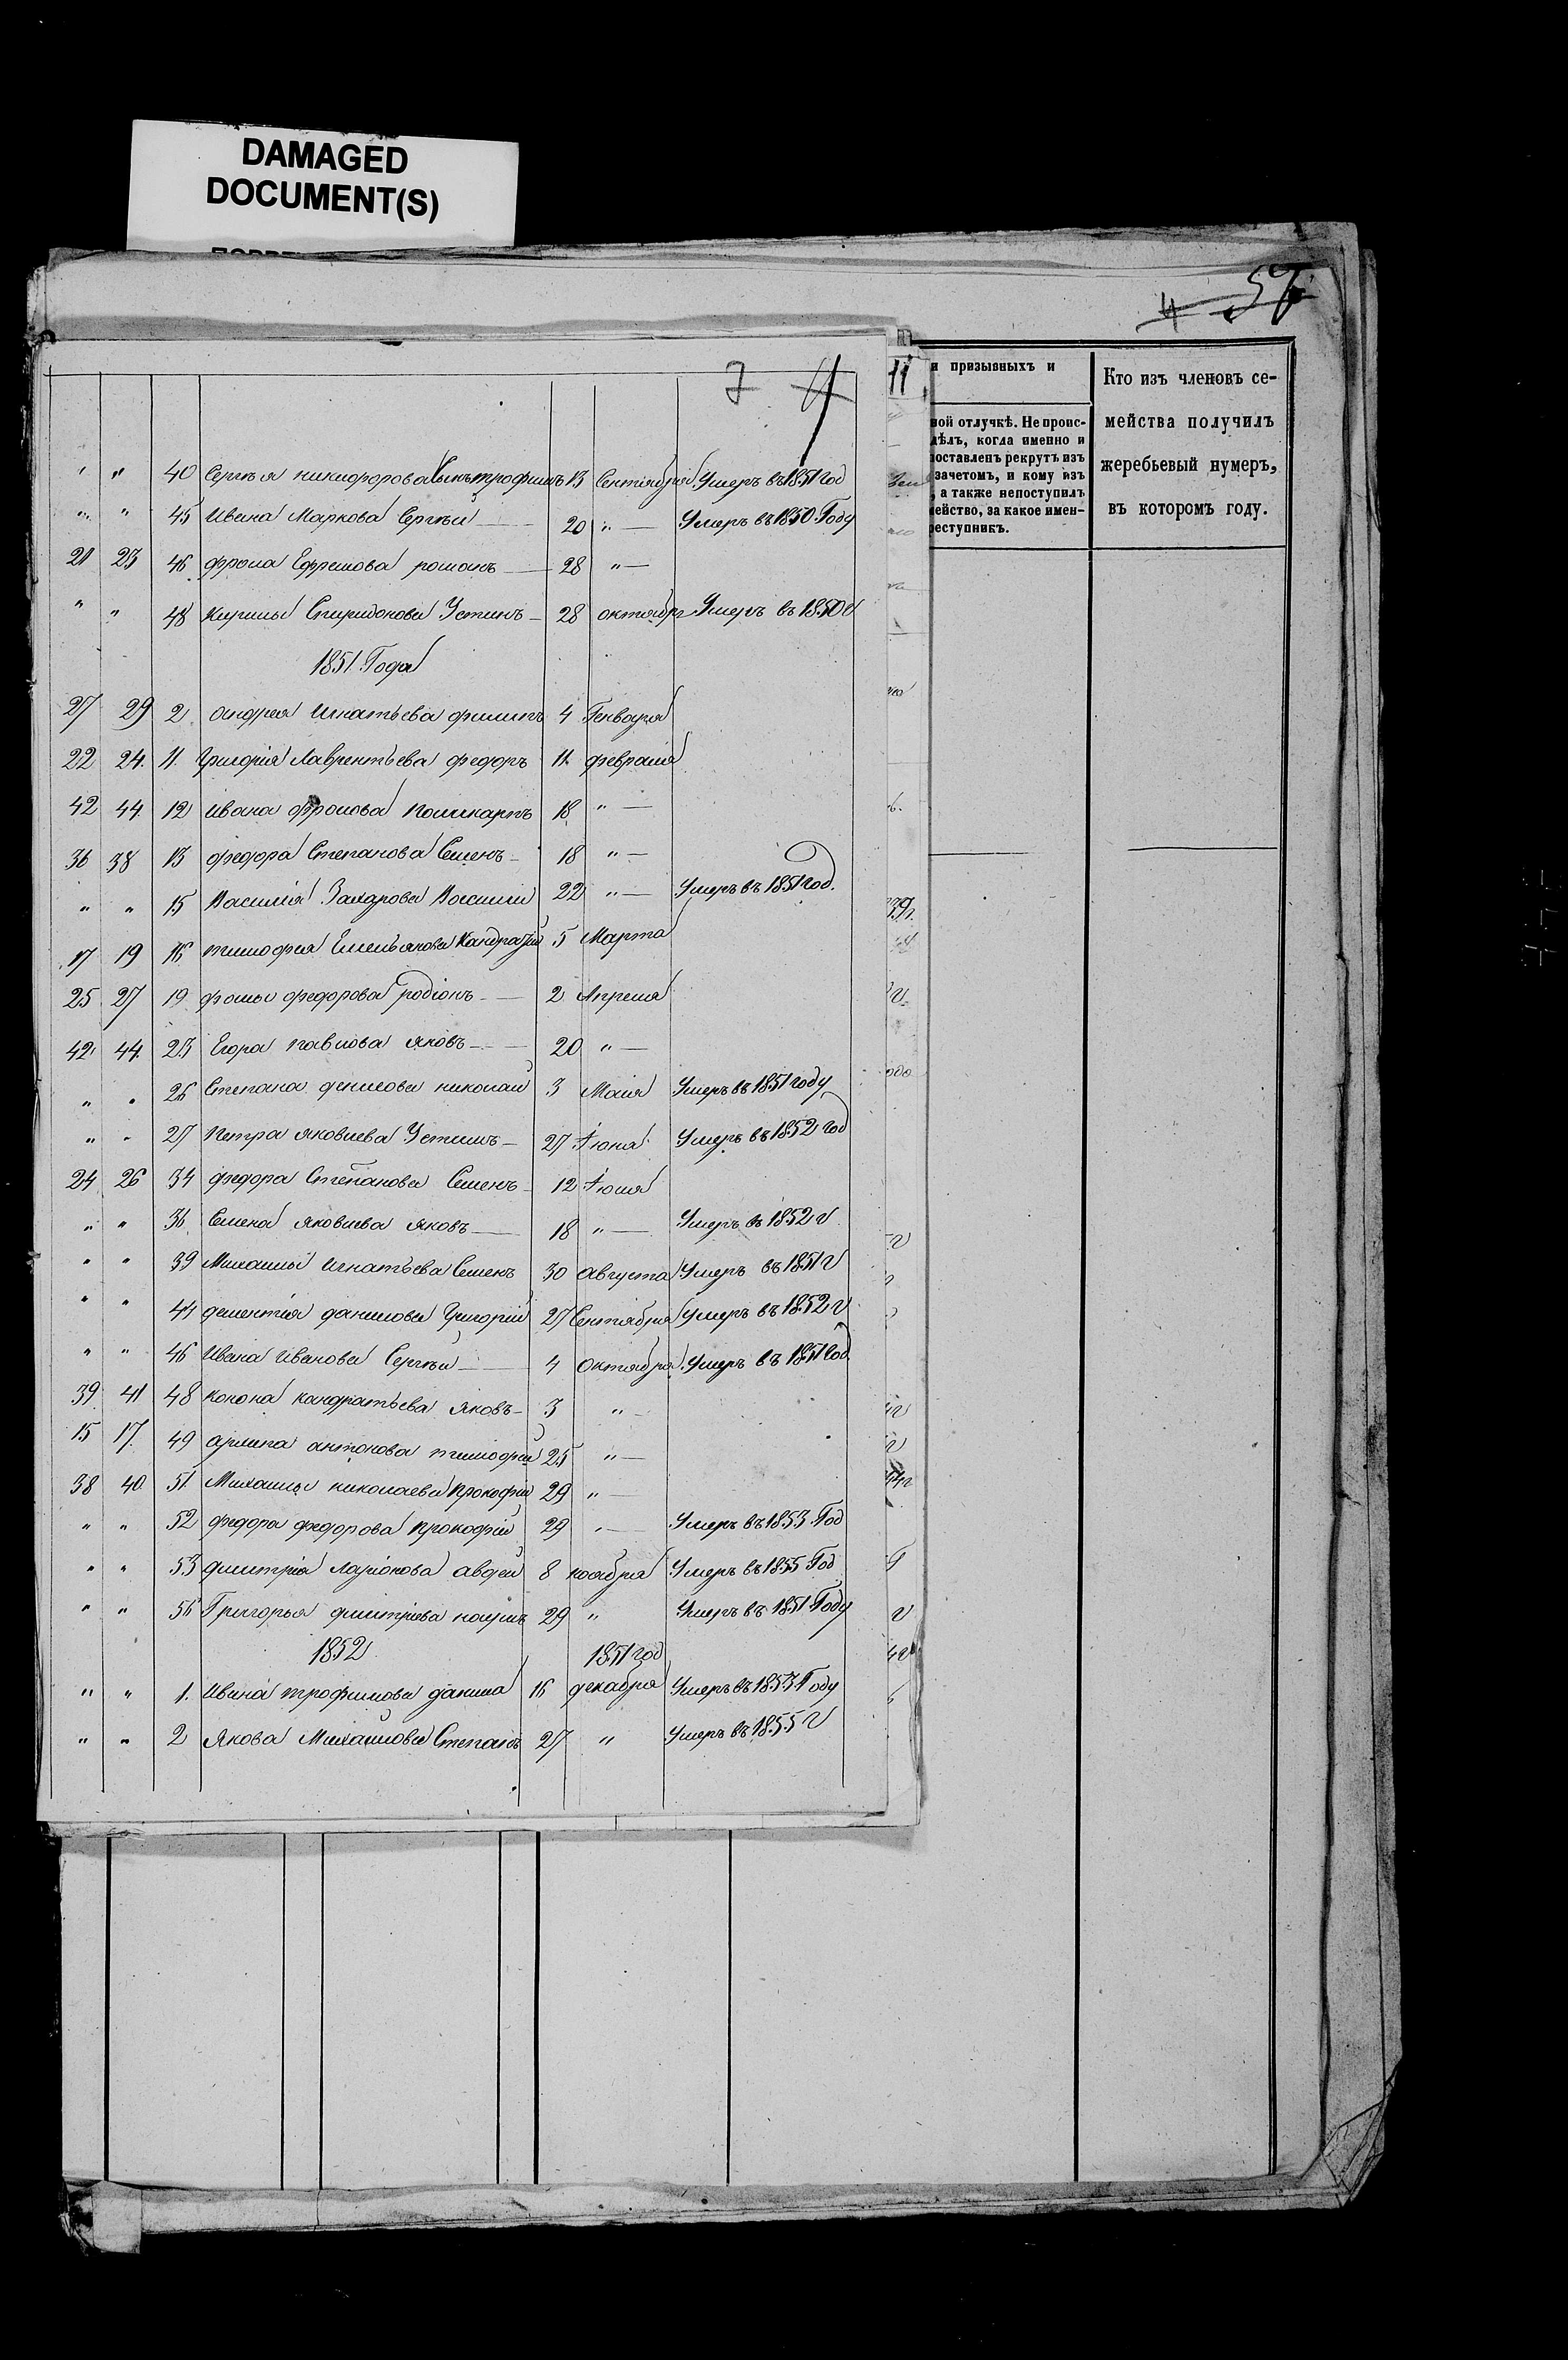 DAMAGED
DOCUMENT(S)
57
4
7 4
11
и призывныхъ и
Кто изъ членовъ се-
мейства получилъ
жеребьевый нумеръ,
въ которомъ году.
ной отлучкѣ. Не проис-
дѣлъ, когда именно и
поставленъ рекрутъ изъ
зачетомъ, и кому изъ
, а также непоступилъ
мейство, за какое имен-
реступникъ.
" " 40 Сергѣя никифорова Сынъ трофимъ 13 Сентября Умеръ въ 1851 год
" " 45 Ивана Маркова Сергѣи 20 " — Умеръ въ 1850 Году
21 23 46 фрола Ефремова романъ 28 " —
" " 48 Кирилы Спиридонова Устинъ 28 октября Умеръ въ 1850 г
1851 Года
27 29 2 андрея игнатьева филипъ 4 Генваря
22 24. 11. Григорія Лаврентьева федоръ 11. февраля
42 44. 12 ивана фролова поликарпъ 18 " —
36 38 13 федора Степанова Семенъ 18 " —
" " 15 Василія Захарова Василии 22 " — Умеръ въ 1851 год.
17 19 16 тимофея Емельянова Кандратіи 5 Марта
25 27 19 фомы федорова родіонъ 2 Апреля
42 44. 23 Егора павлова яковъ 20 " —
" " 26 Степана денисова николаи 3 Маія Умеръ въ 1851 году
" " 27 Петра яковлева Устинъ 27 Іюня Умеръ въ 1852 год
24 26 34 федора Степанова Семенъ 12 Іюля
" " 36 Семена яковлева яковъ 18 " — Умеръ въ 1852 г
" " 39 Михаилы игнатьева Семенъ 30 августа Умеръ въ 1851 г
" " 44 дементія данилова Григоріи 27 Сентября Умеръ въ 1852 г
" " 46 Ивана Иванова Сергѣи 4 октября Умеръ въ 1851 год
39 41 48 конона кандратьева яковъ 3 " —
15 17. 49 архипа антонова тимофеи 25 " —
38 40. 51. Михаилы николаева прокофіи 29 " —
" " 52 федора федорова прокофіи 29 " — Умеръ въ 1853 Год
" " 53 дмитрія ларіонова авдеи 8 ноября Умеръ въ 1855 Год
" " 56 Григорья дмитріева наумъ 29 " Умеръ въ 1851 Году
1852 1851 год
" " 1. Ивана трофимова данила 16 декабря Умеръ въ 1853 Году
" " 2 Якова Михаилова Степанъ 27 " Умеръ въ 1855 г